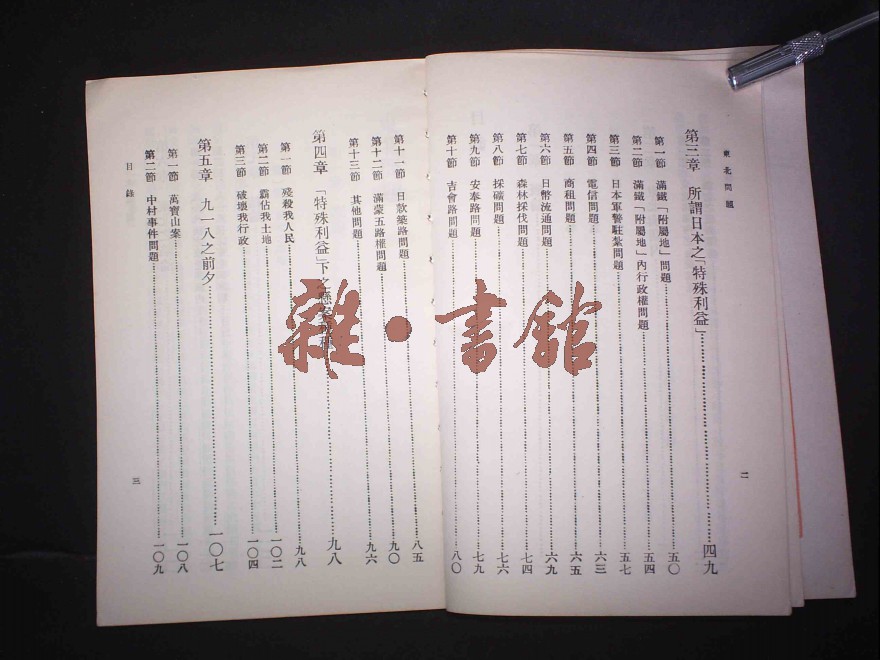 東北問題
第三章 所謂日本之「特殊利益」……四九
第一節 滿鐵「附屬地」問題……五〇
第二節 滿鐵「附屬地」內行政權問題……五四
第三節 日本軍警駐紮問題……五七
第四節 電信問題……六三
第五節 商租問題……六五
第六節 日幣流通問題……六九
第七節 森林採伐問題……七四
第八節 採礦問題……七六
第九節 安奉路問題……七九
第十節 吉會路問題……八〇
二
第十一節 日款築路問題……八五
第十二節 滿蒙五路權問題……九〇
第十三節 其他問題……九六
第四章 「特殊利益」下之懸案……九八
第一節 殘殺我人民……九八
第二節 霸佔我土地……一〇二
第三節 破壞我行政……一〇四
第五章 九一八之前夕……一〇七
第一節 萬寶山案……一〇八
第二節 中村事件問題……一〇九
目錄
三
雜·書館